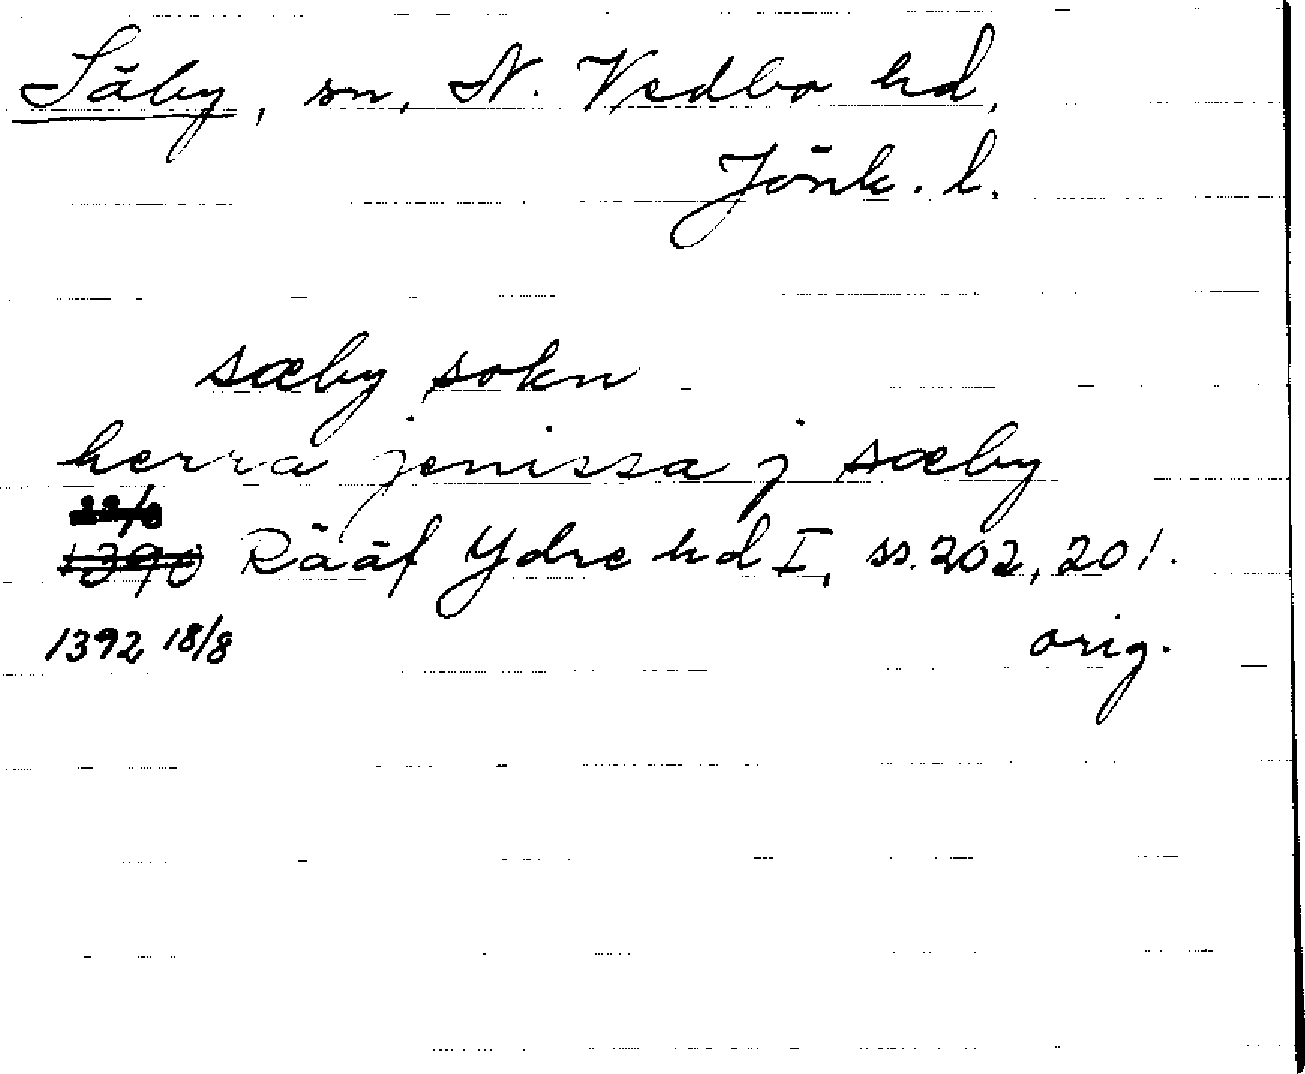 Säby, sn, N. Vedbo hd,
Jönk. l.
sæby sokn
herra jenissa j sæby
22/6
1390 Rääf Ydre hd I, ss. 202, 201.
1392 18/8 orig.